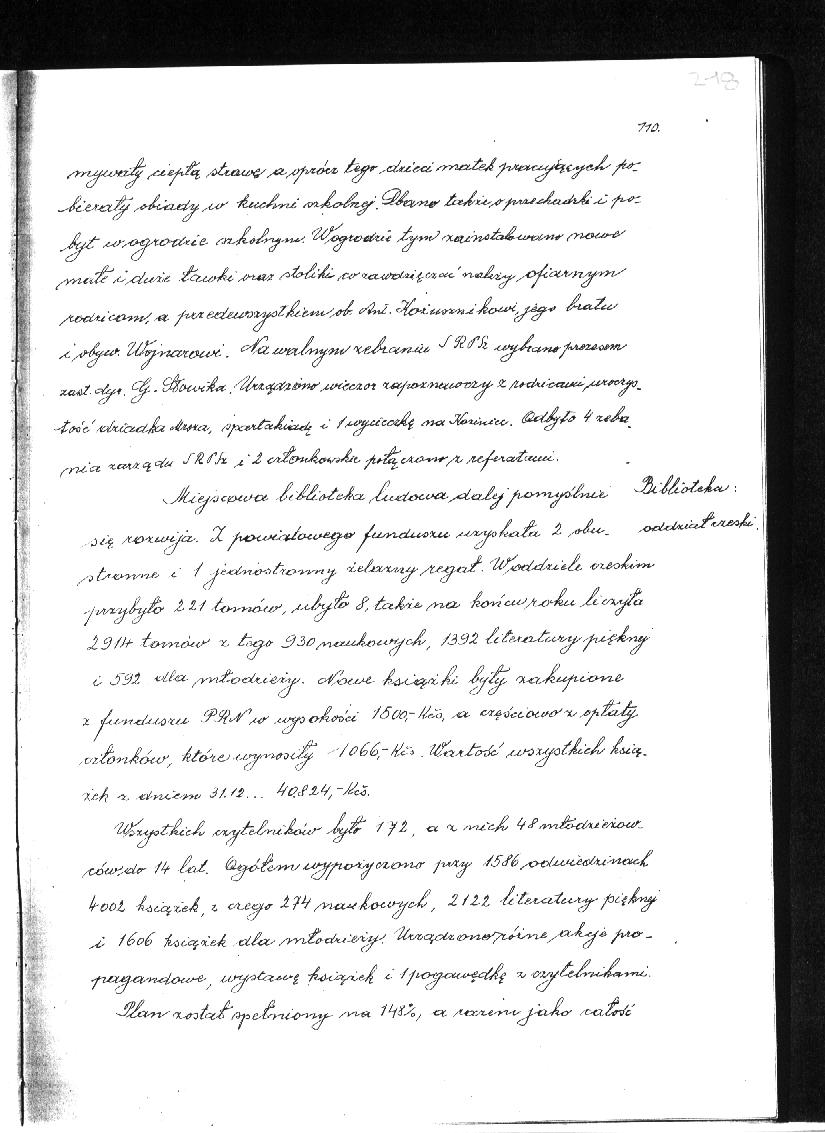 218
110.
mywały ciepłą strawę a oprócz tego dzieci matek pracujących po-
bierały obiady w kuchni szkolnej. Dbano także o przechadzki i po-
byt w ogrodzie szkolnym. W ogrodzie tym zainstalowano nowe
małe i duże ławki oraz stoliki co zawdzięczać należy ofiarnym
rodzicom, a przedewszystkiem ob. Ant. Kożusznikowi, jego bratu
i obyw. Wojnarowi. Na walnym zebraniu SRPSz wybrano prezesem
zast. dyr. G. Słowika. Urządzono wieczór zapoznawczy z rodzicami, uroczys-
tość dziadka Mroza, spartakiadę i 1 wycieczkę na Kozinec. Odbyto 4 zebra-
nia zarządu SRPSz i 2 członkowskie połączono z referatami.
Miejscowa biblioteka ludowa dalej pomyślnie
Biblioteka:
się rozwija. Z powiatowego funduszu uzyskała 2 obu-
oddział czeski.
stronne i 1 jednostronny żelazny regał. W oddziele czeskim
przybyło 221 tomów, ubyło 8, także na końcu roku liczyła
2914 tomów z tego 930 naukowych, 1392 literatury pięknej
i 592 dla młodzieży. Nowe książki były zakupione
z funduszu PRN w wysokości 1500,- Kčs, a częściowo z opłaty
członków, które wynosiły 1066,- Kčs. Wartość wszystkich ksią-
żek z dniem 31.12... 40.824,- Kčs.
Wszystkich czytelników było 172, a z nich 48 młodzieżow-
ców do 14 lat. Ogółem wypożyczono przy 1586 odwiedzinach
4002 książek, z czego 274 naukowych, 2122 literatury pięknej
i 1606 książek dla młodzieży. Urządzono różne akcje pro-
pagandowe, wystawę książek i 1 pogawędkę z czytelnikami.
Plan został spełniony na 148%, a razem jako całość